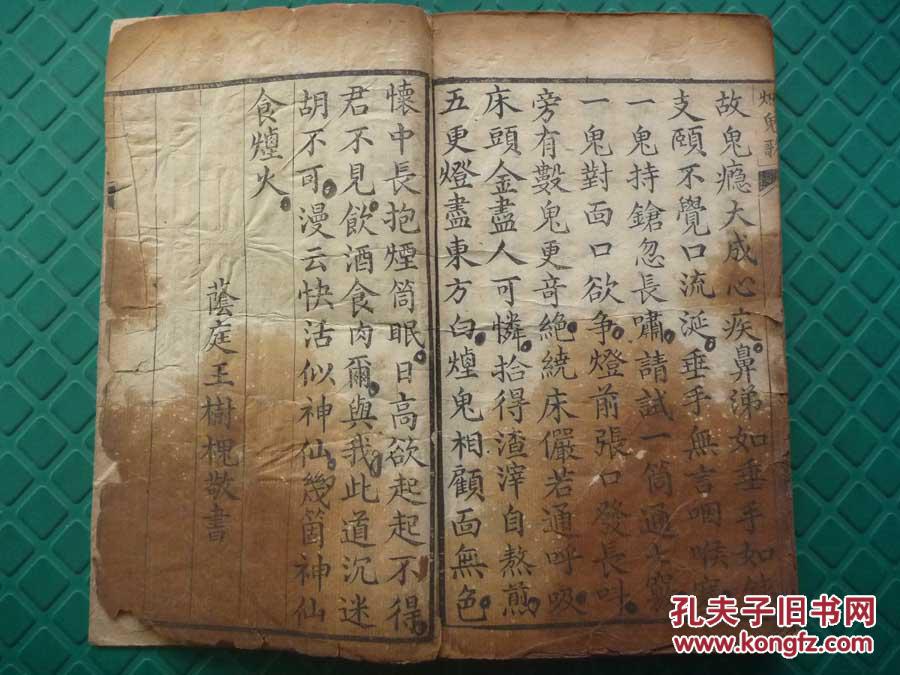 烟鬼歌
故鬼瘾大成心疾。鼻涕如垂手如
支頤不覺口流涎。垂手無言咽喉
一鬼持鎗忽長嘯。請試一筒通大竅
一鬼對面口欲争。燈前張口發長叫。
旁有數鬼更奇絶。繞床儼若通呼吸。
床頭金盡人可憐。拾得渣滓自熬煎。
五更燈盡東方白。煙鬼相顧面無色。
懷中長抱煙筒眠。日高欲起起不得。
君不見。飲酒食肉爾與我。此道沉迷
胡不可。漫云快活似神仙。幾箇神仙
食煙火。
蔭庭王樹槐敬書
孔夫子旧书网
www.kongfz.com